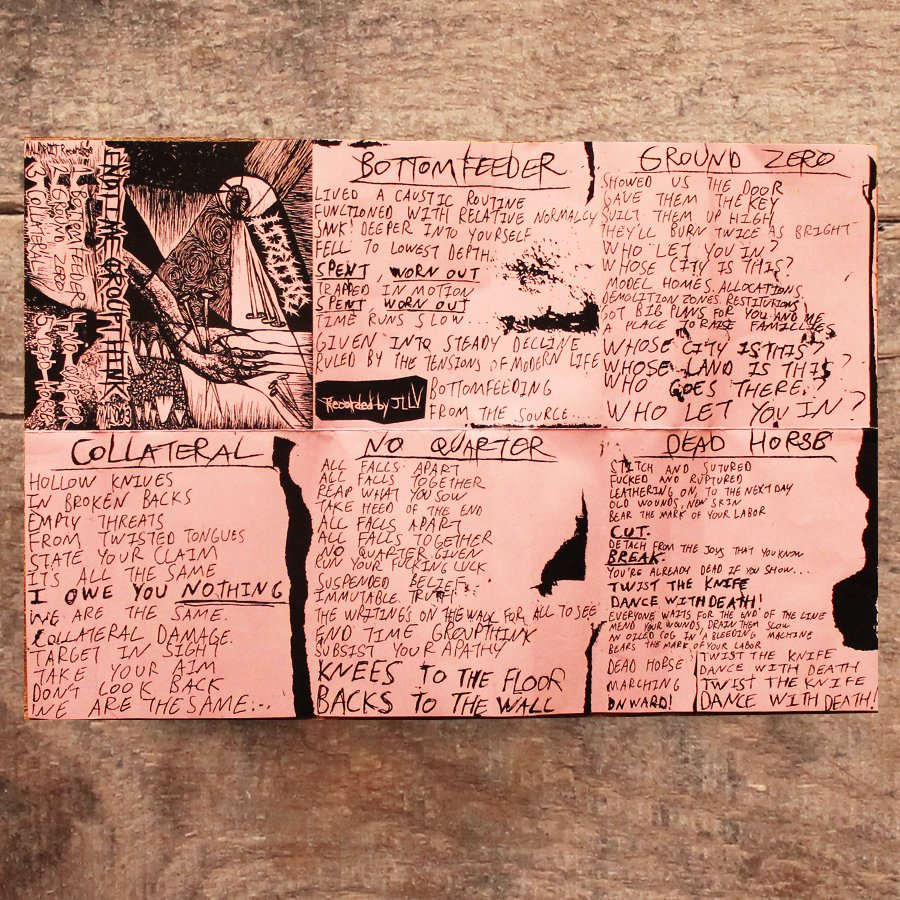 MALADROIT Recordings
END TIME GROUPTHINK
1 BOTTOM FEEDER
2 GROUND ZERO
3 COLLATERAL
4 NO QUARTER
5 DEAD HORSE
BOTTOMFEEDER
LIVED A CAUSTIC ROUTINE
FUNCTIONED WITH RELATIVE NORMALLY
SANK! DEEPER INTO YOURSELF
FELL TO LOWEST DEPTH.
SPENT, WORN OUT
TRAPPED IN MOTION
SPENT WORN OUT
TIME RUNS SLOW...
GIVEN INTO STEADY DECLINE
RULED BY THE TENSIONS OF MODERN LIFE
BOTTOMFEEDING
FROM THE SOURCE.....
Recorded by JLLV
GROUND ZERO
SHOWED US THE DOOR
GAVE THEM THE KEY
BUILT THEM UP HIGH
THEY'LL BURN TWICE AS BRIGHT
WHO LET YOU IN?
WHOSE CITY IS THIS?
MODEL HOMES. ALLOCATIONS
DEMOLITION ZONES. RESTITUTIONS
GOT BIG PLANS FOR YOU AND ME
A PLACE TO RAISE FAMILLIES
WHOSE CITY IS THIS?
WHOSE LAND IS THIS?
WHO GOES THERE?
WHO LET YOU IN?
COLLATERAL
HOLLOW KNIVES
IN BROKEN BACKS
EMPTY THREATS
FROM TWISTED TONGUES
STATE YOUR CLAIM
IT'S ALL THE SAME
I OWE YOU NOTHING
WE ARE THE SAME.
COLLATERAL DAMAGE.
TARGET IN SIGHT
TAKE YOUR AIM
DON'T LOOK BACK
WE ARE THE SAME...
NO QUARTER
ALL FALLS APART
ALL FALLS TOGETHER
REAP WHAT YOU SOW
TAKE HEED OF THE END
ALL FALLS APART
ALL FALLS TOGETHER
NO QUARTER GIVEN
RUN YOUR FUCKING LUCK
SUSPENDED BELIEF...
IMMUTABLE TRUTH
THE WRITING'S ON THE WALL FOR ALL TO SEE
END TIME GROUPTHINK
SUBSIST YOUR APATHY
KNEES TO THE FLOOR
BACKS TO THE WALL
DEAD HORSE
STITCH AND SUTURED
FUCKED AND RUPTURED
LEATHERING ON, TO THE NEXT DAY
OLD WOUNDS, NEW SKIN
BEAR THE MARK OF YOUR LABOR
CUT.
DETACH FROM THE JOYS THAT YOU KNOW
BREAK.
YOU'RE ALREADY DEAD IF YOU SHOW...
TWIST THE KNIFE
DANCE WITH DEATH!
EVERYONE WAITS FOR THE END OF THE LINE
MEND YOUR WOUNDS, DRAIN THEM SLOW
AN OILED COG IN A BLEEDING MACHINE
BEARS THE MARK OF YOUR LABOR
DEAD HORSE
MARCHING
ONWARD!
TWIST THE KNIFE
DANCE WITH DEATH
TWIST THE KNIFE
DANCE WITH DEATH!